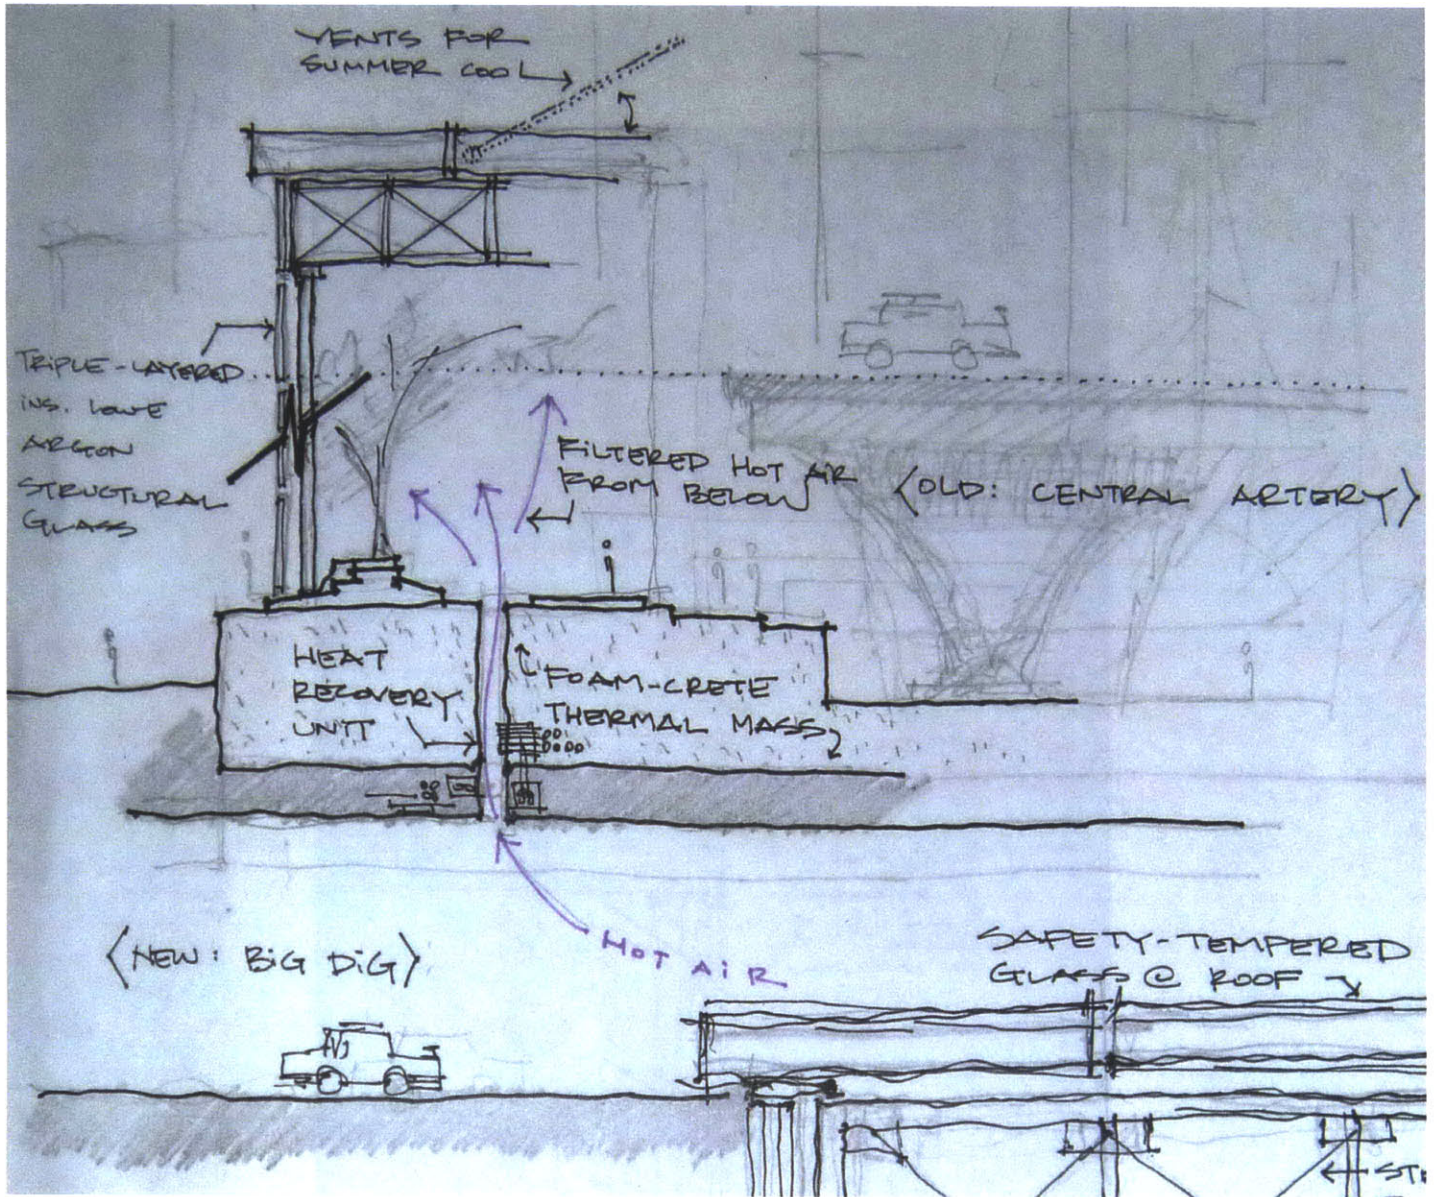 VENTS FOR
SUMMER COOL
TRIPLE-LAYERED
INS. LOWE
ARGON
STRUCTURAL
GLASS
FILTERED HOT AIR
FROM BELOW
<OLD: CENTRAL ARTERY>
HEAT
RECOVERY
UNIT
FOAM-CRETE
THERMAL MASS
<NEW: BIG DIG>
HOT AIR
SAFETY-TEMPERED
GLASS @ ROOF